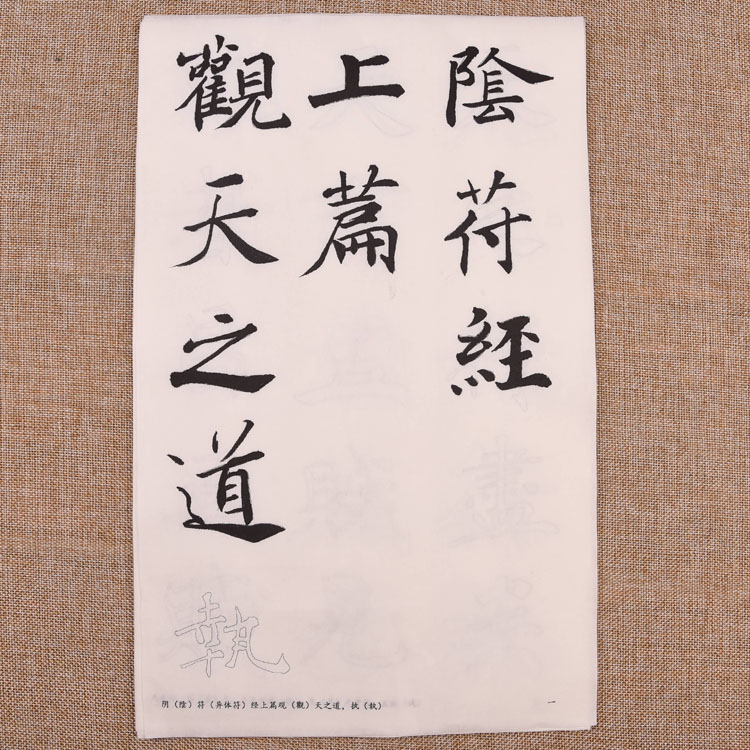 陰苻經
上篇
觀天之道執
阴（陰）符（异体符）经上篇观（觀）天之道，执（執）
一